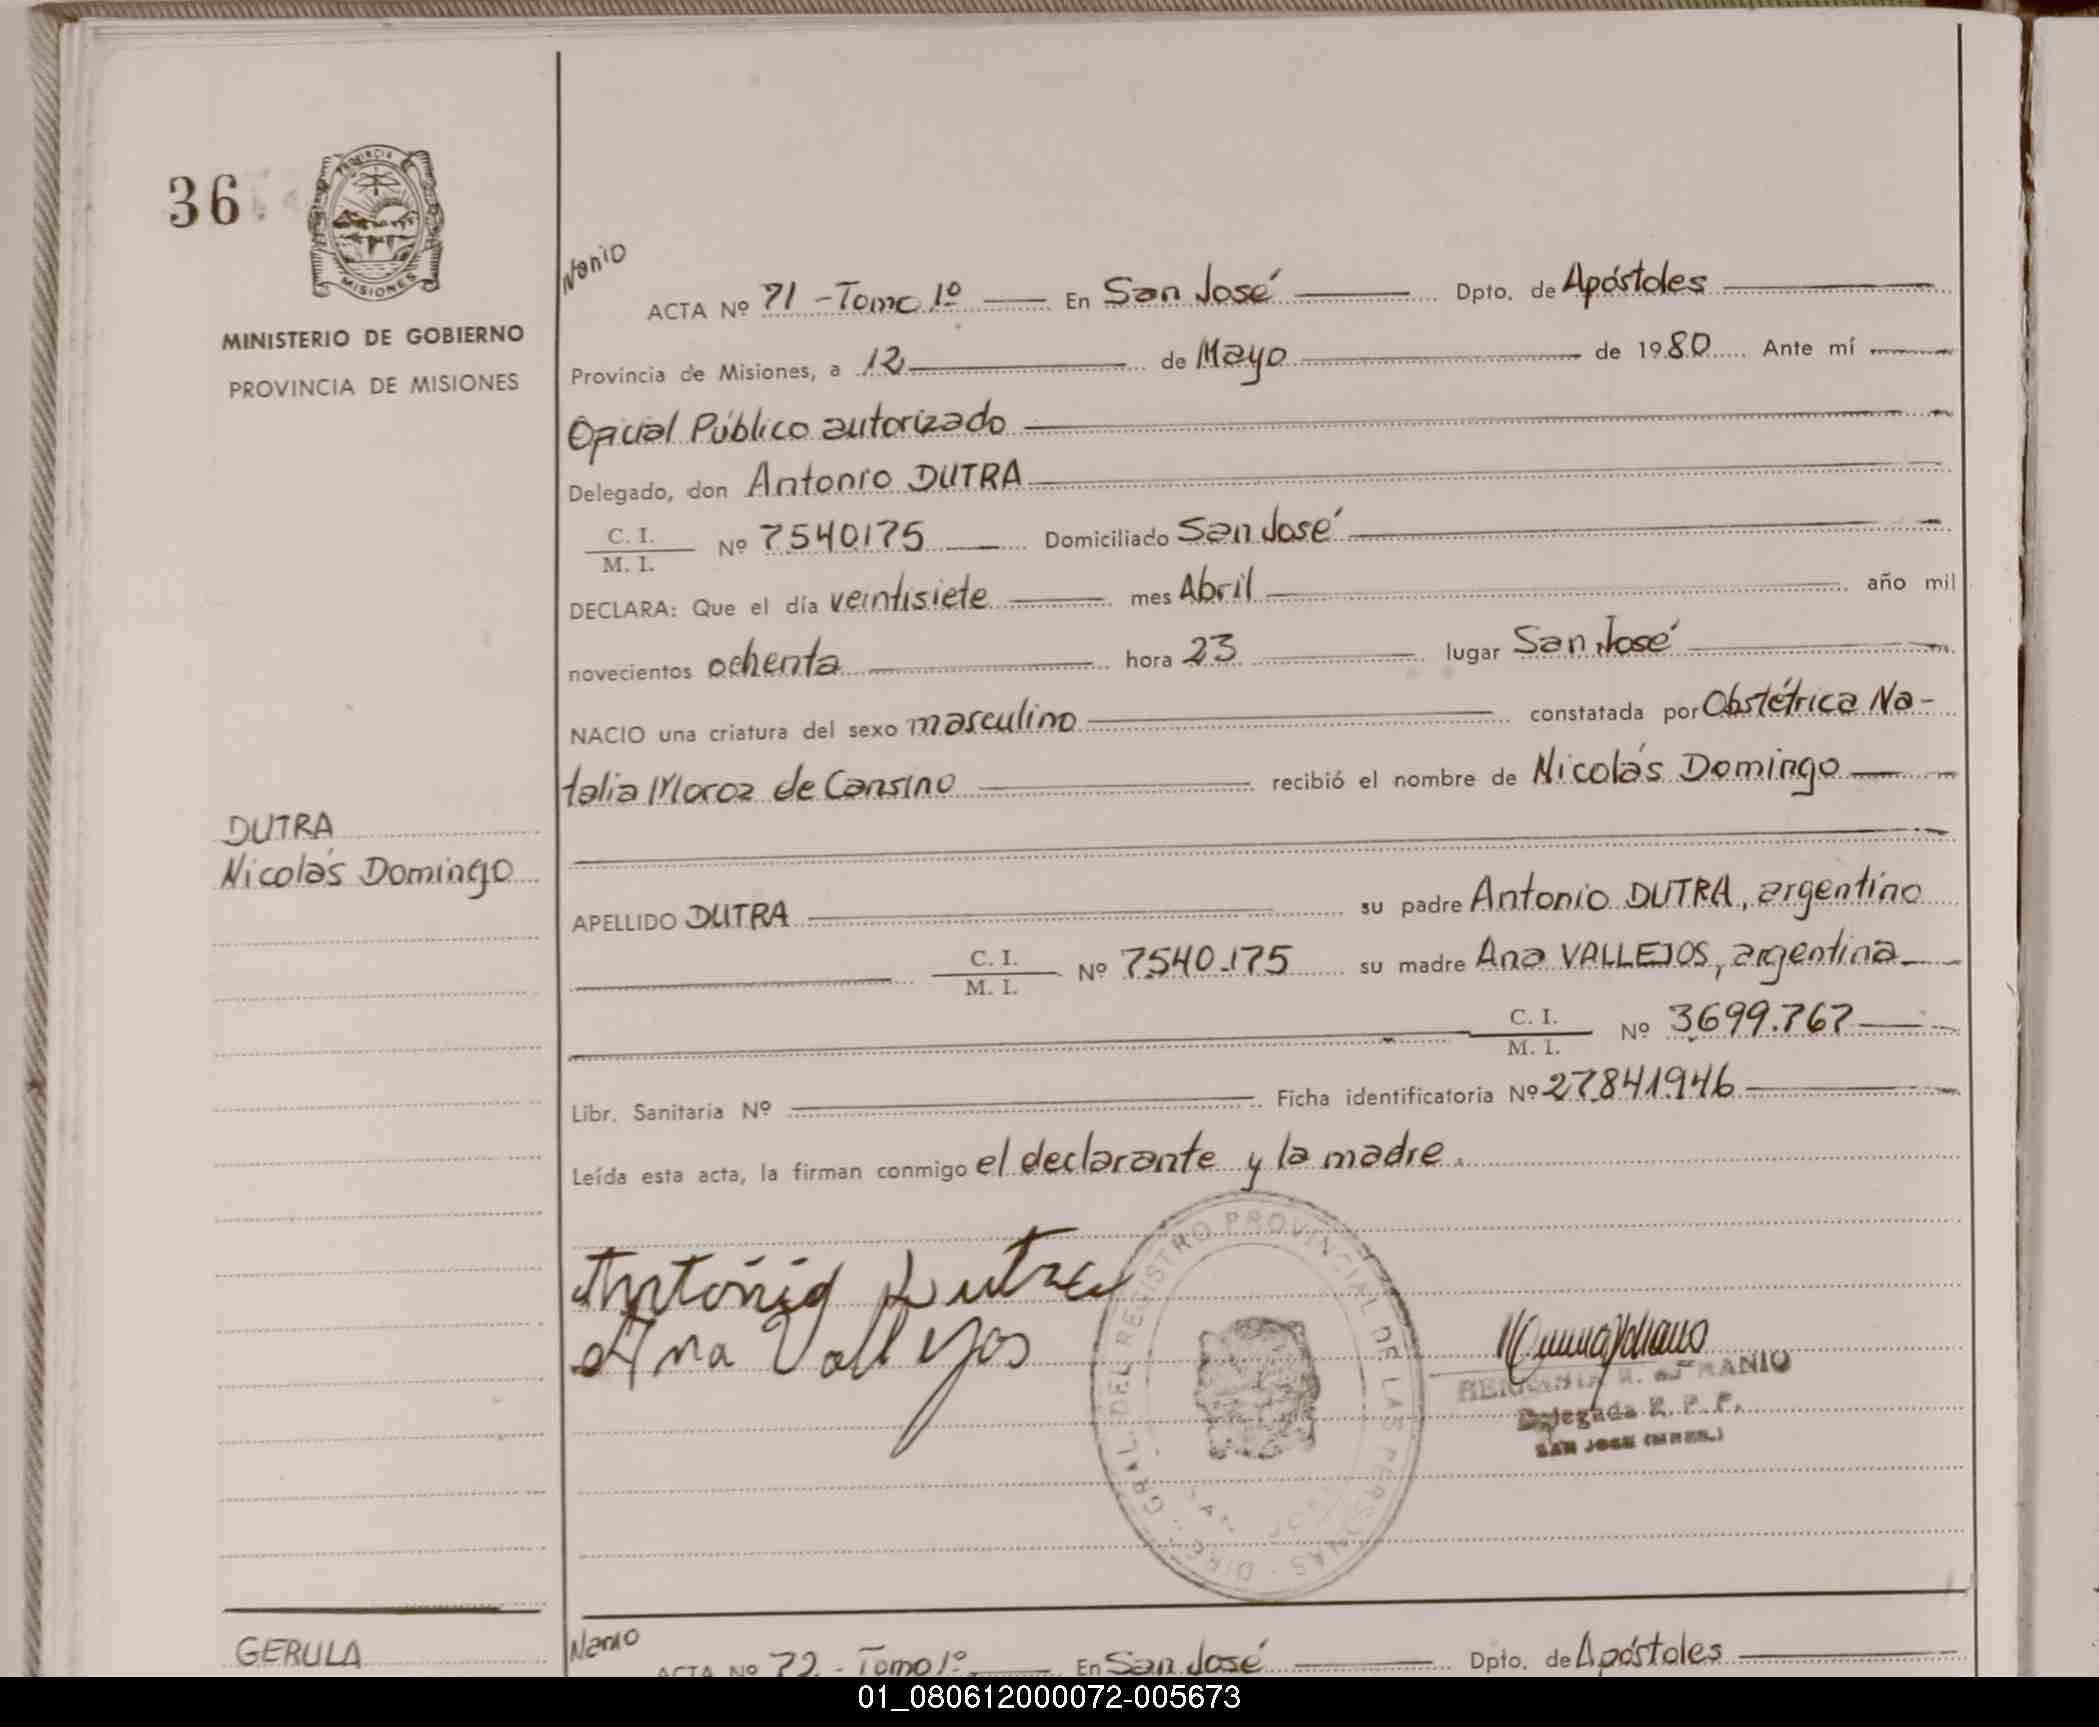 36
PROVINCIA DE
MISIONES
MINISTERIO DE GOBIERNO
PROVINCIA DE MISIONES
DUTRA
Nicolás Domingo
Nanio
ACTA Nº 71 - Tomo 1º En San José Dpto. de Apóstoles
Provincia de Misiones, a 12 de Mayo de 1980 Ante mí
Oficial Público autorizado
Delegado, don Antonio DUTRA
C. I.
M. I. Nº 7540175 Domiciliado San José
DECLARA: Que el día veintisiete mes Abril año mil
novecientos ochenta hora 23 lugar San José
NACIO una criatura del sexo masculino constatada por Obstétrica Na-
talia Moroz de Cansino recibió el nombre de Nicolás Domingo
APELLIDO DUTRA su padre Antonio DUTRA, argentino
C. I.
M. I. Nº 7540.175 su madre Ana VALLEJOS, argentina
C. I.
M. I. Nº 3699.767
Libr. Sanitaria Nº Ficha identificatoria Nº 27.841.946
Leída esta acta, la firman conmigo el declarante y la madre.
Antonio Dutra
Ana Vallejos
DIREC. GRAL. DEL REGISTRO PROVINCIAL DE LAS PERSONAS
SAN JOSE
Delegada R. P. P.
SAN JOSE (MNES.)
GERULA
Nanio
ACTA Nº 72 - Tomo 1º En San José Dpto. de Apóstoles
01_080612000072-005673